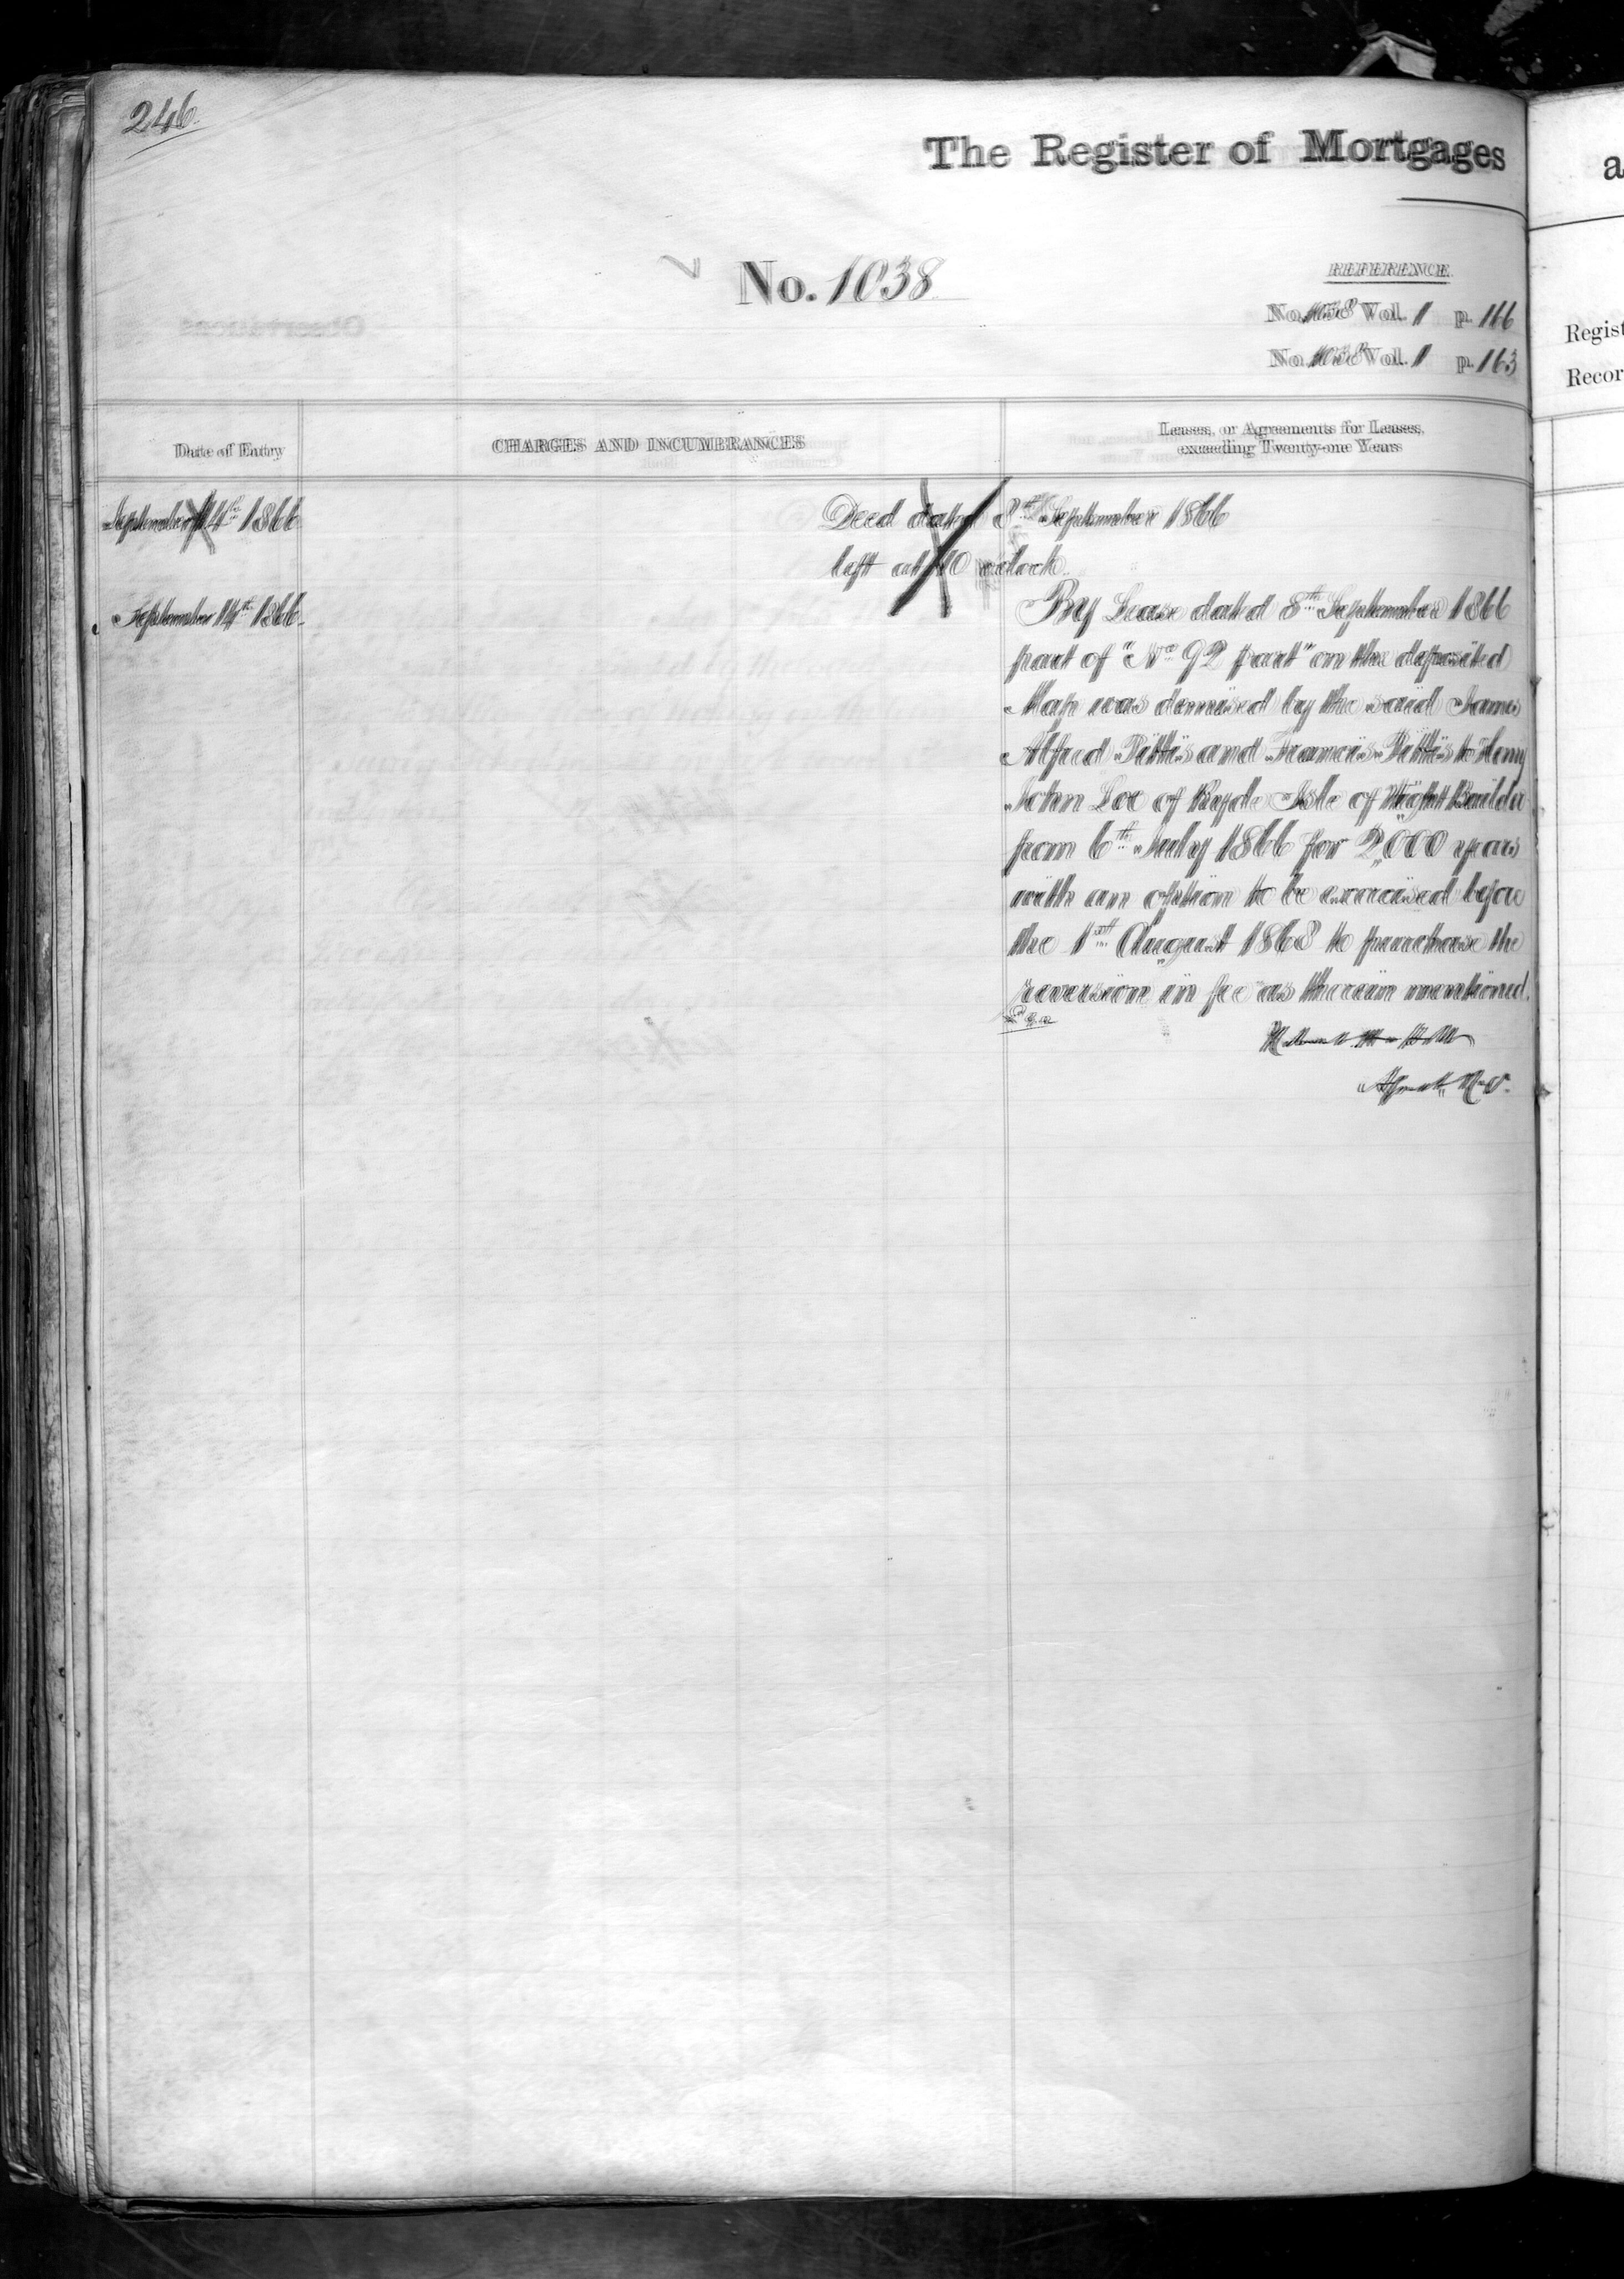 246.
The Register of Mortgages
No. 1038
REFERENCE.
No. 1038 Vol. 1 p. 166
No. 1038 Vol. 1 p. 163
Date of Entry
CHARGES AND INCUMBRANCES
Leases, or Agreements for Leases,
exceeding Twenty-one Years
September 14th 1866
Deed dated 8th September 1866
left at 10 o'clock.
September 14th 1866.
By Lease dated 8th September 1866
part of "No 92 part" on the deposited
Map was demised by the said James
Alfred Pittis and Francis Pittis to Henry
John Loe of Ryde Isle of Wight Builder
from 6th July 1866 for 2,000 years
with an option to be exercised before
the 1st August 1868 to purchase the
reversion in fee as therein mentioned.
a
Regist
Recor